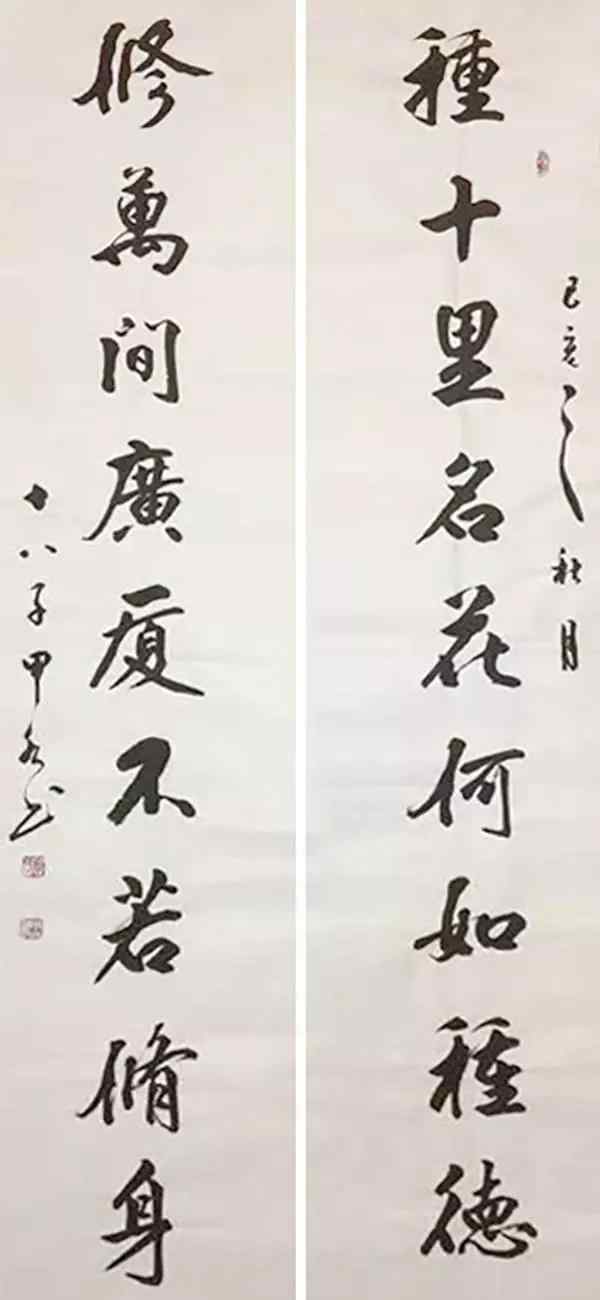 種十里名花何如種德
己亥之秋月
修萬間廣厦不若脩身
十八子甲